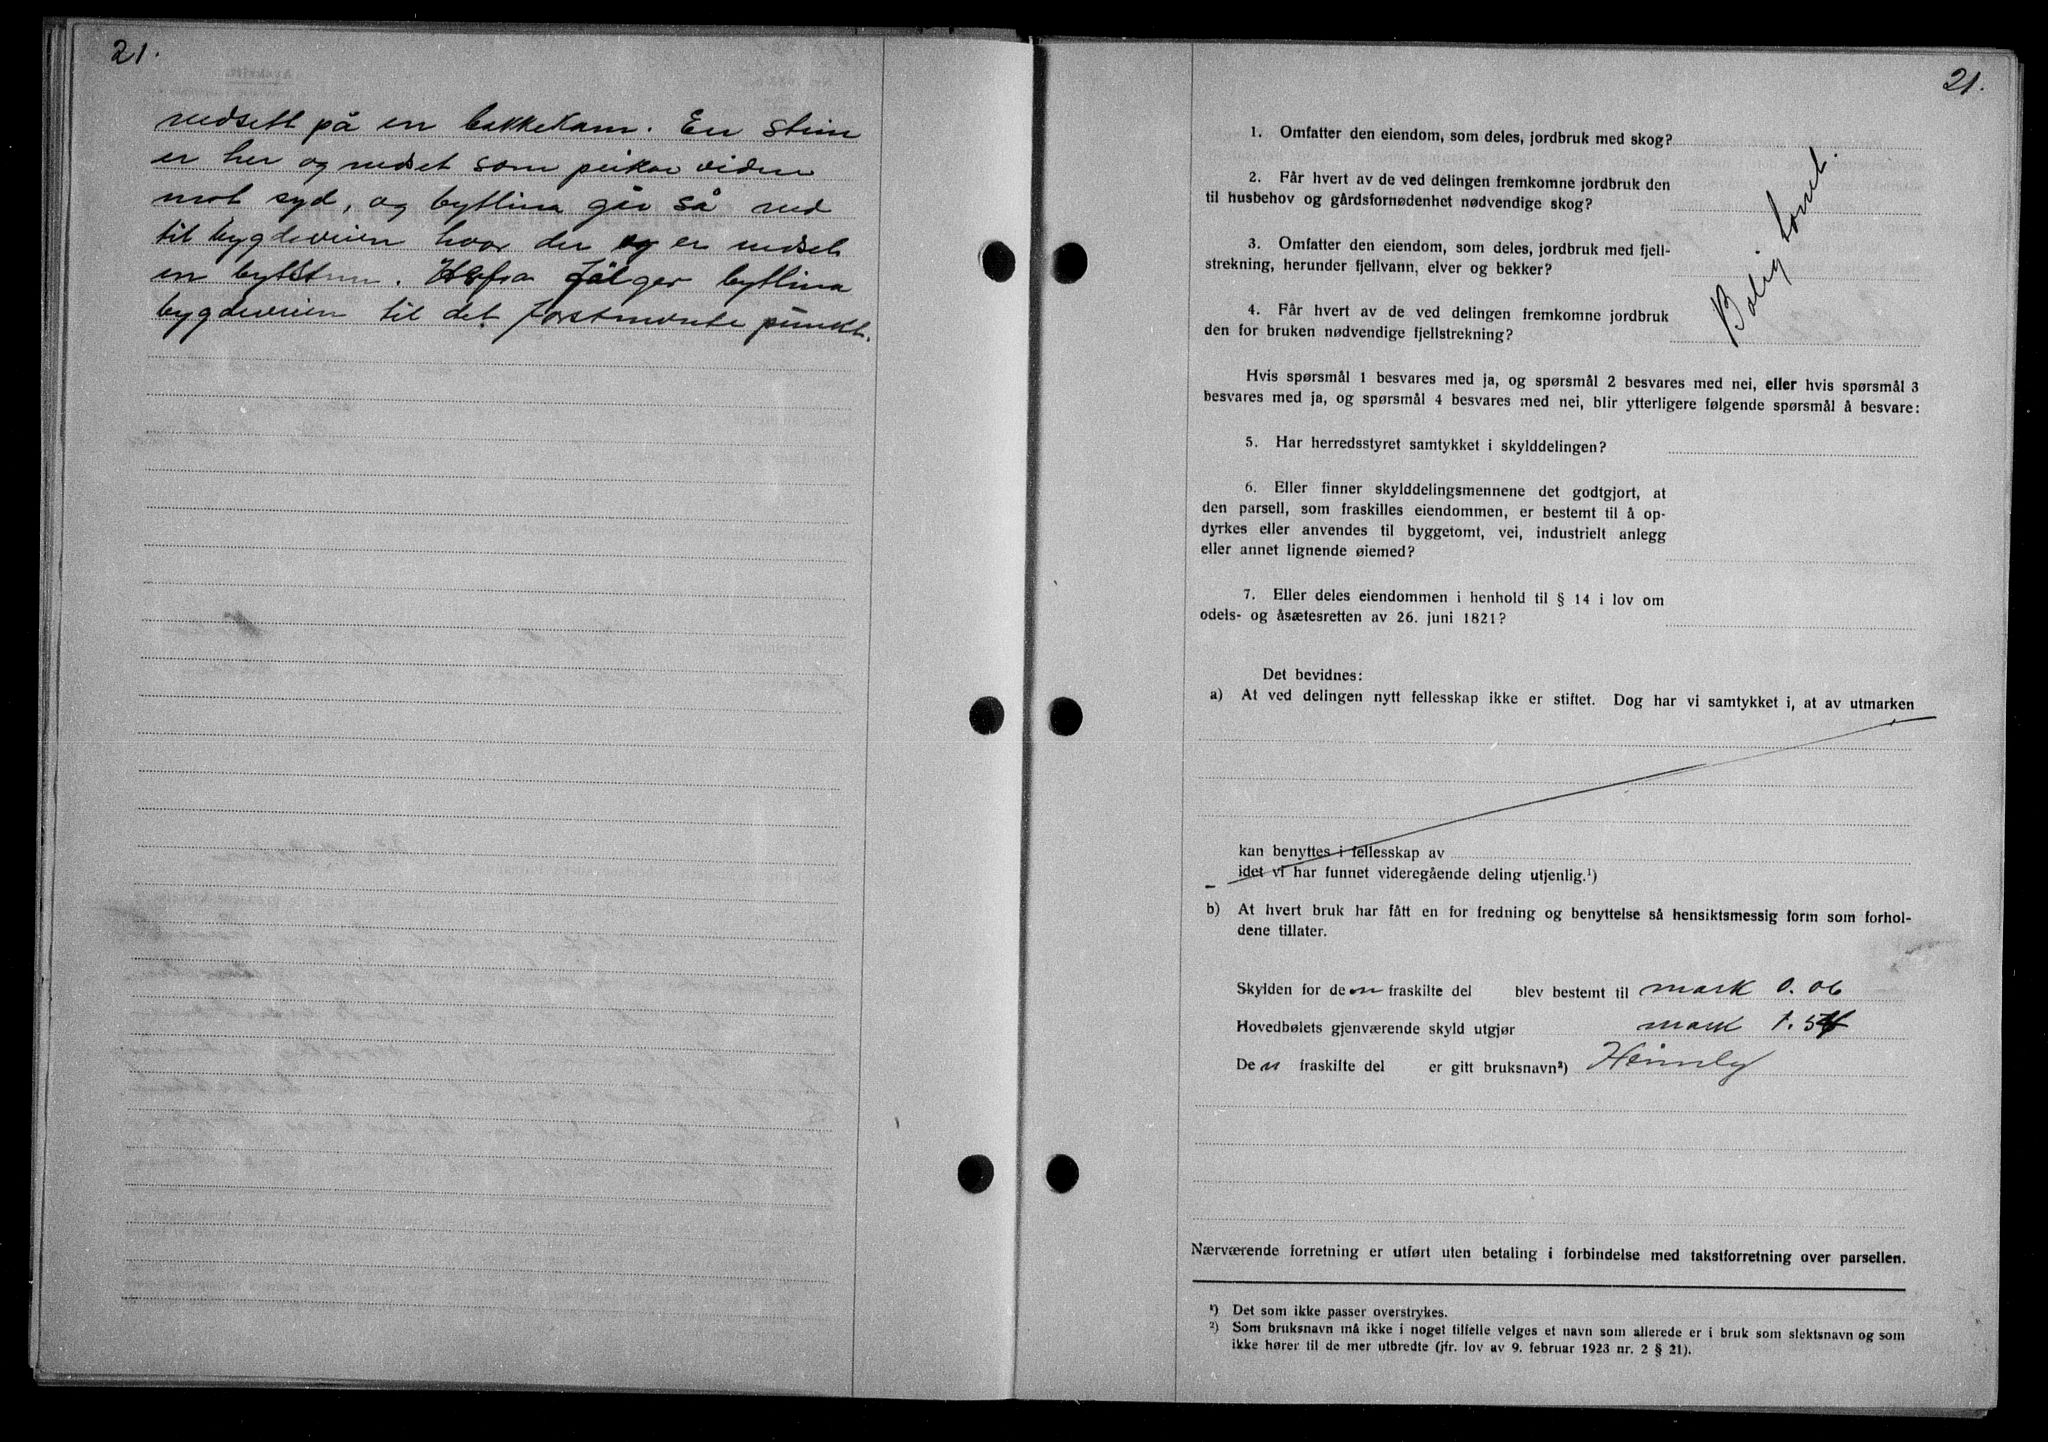 21.
nedsett på en bakkekam. En stein
er her og nedset som peikar videre
mot syd, og bytlina går så ned
til bygdeveien hvor der og er nedset
en bytstein. Herfra følger bytlina
bygdeveien til det førstnevnte punkt.
21.
1. Omfatter den eiendom, som deles, jordbruk med skog?
2. Får hvert av de ved delingen fremkomne jordbruk den
til husbehov og gårdsfornødenhet nødvendige skog?
3. Omfatter den eiendom, som deles, jordbruk med fjell-
strekning, herunder fjellvann, elver og bekker?
4. Får hvert av de ved delingen fremkomne jordbruk
den for bruken nødvendige fjellstrekning?
Bolig tomt.
Hvis spørsmål 1 besvares med ja, og spørsmål 2 besvares med nei, eller hvis spørsmål 3
besvares med ja, og spørsmål 4 besvares med nei, blir ytterligere følgende spørsmål å besvare:
5. Har herredsstyret samtykket i skylddelingen?
6. Eller finner skylddelingsmennene det godtgjort, at
den parsell, som fraskilles eiendommen, er bestemt til å op-
dyrkes eller anvendes til byggetomt, vei, industrielt anlegg
eller annet lignende øiemed?
7. Eller deles eiendommen i henhold til § 14 i lov om
odels- og åsætesretten av 26. juni 1821?
Det bevidnes:
a) At ved delingen nytt fellesskap ikke er stiftet. Dog har vi samtykket i, at av utmarken
kan benyttes i fellesskap av
idet vi har funnet videregående deling utjenlig.¹)
b) At hvert bruk har fått en for fredning og benyttelse så hensiktsmessig form som forhol-
dene tillater.
Skylden for den fraskilte del blev bestemt til mark 0.06
Hovedbølets gjenværende skyld utgjør mark 1.54
Den fraskilte del er gitt bruksnavn²) Heimly
Nærværende forretning er utført uten betaling i forbindelse med takstforretning over parsellen.
¹) Det som ikke passer overstrykes.
²) Som bruksnavn må ikke i noget tilfelle velges et navn som allerede er i bruk som slektsnavn og som
ikke hører til de mer utbredte (jfr. lov av 9. februar 1923 nr. 2 § 21).